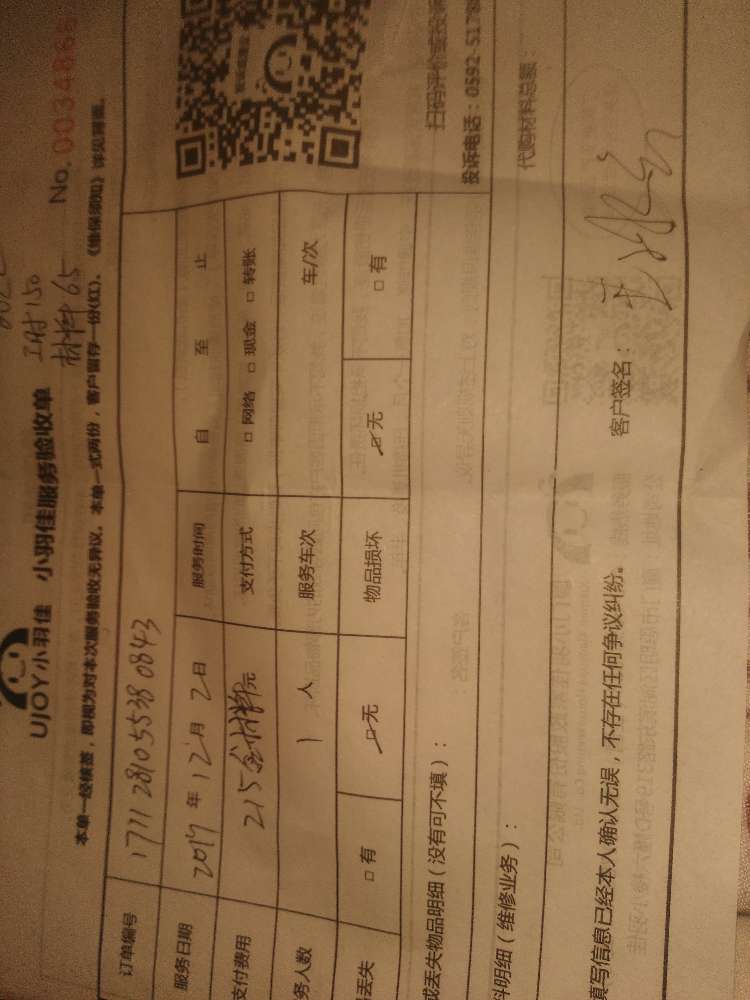 工时150
材料65
UJOY小羽佳 小羽佳服务验收单 No. 003486
本单一经核签，即视为对本次服务验收无异议。本单一式两份，客户留存一份(红)、《维保须知》详见背面。
订单编号 171128105538 0843
服务日期 2017年12月2日 服务时间 自 至 止
支付费用 215含材料元 支付方式 □网络 □现金 □转账
务人数 1人 服务车次 车/次
丢失 □有 ☑无 物品损坏 ☑无 □有
扫码评价或投诉
投诉电话：0592-5178
或丢失物品明细（没有可不填）：
料明细（维修业务）： 代购材料总额：
填写信息已经本人确认无误，不存在任何争议纠纷。 客户签名：